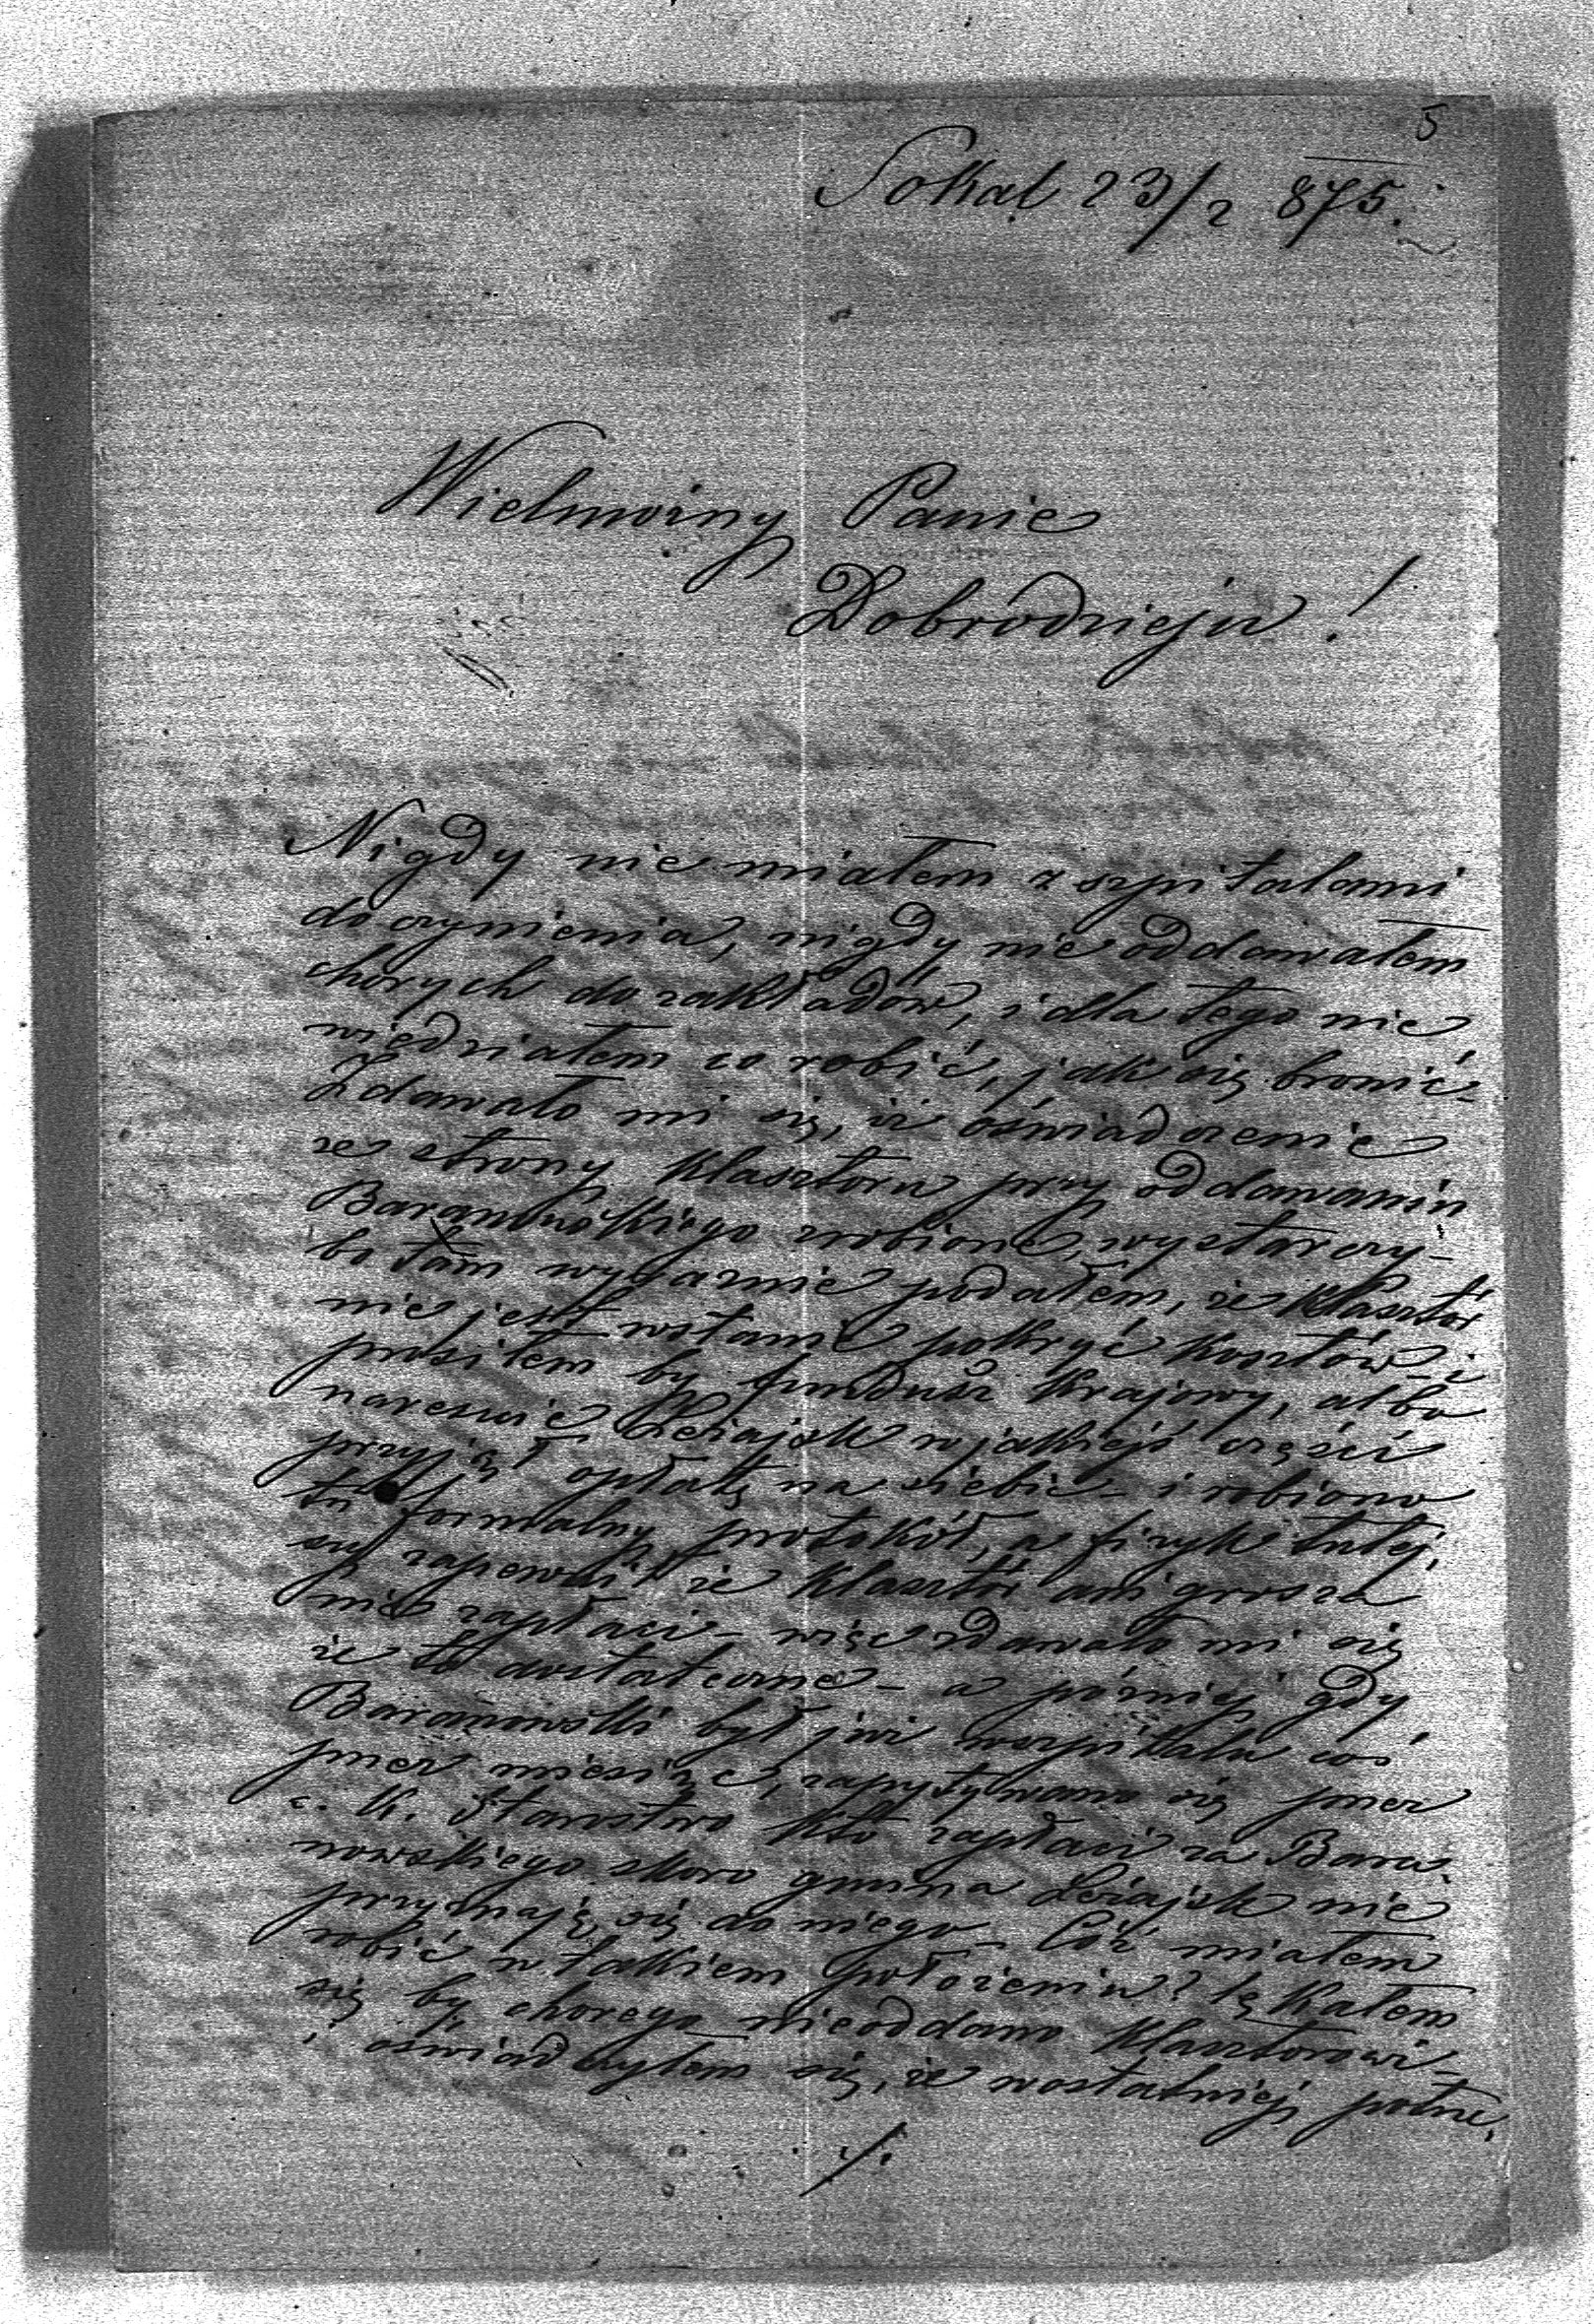 5
Sokal 23/2 875.
Wielmożny Panie
Dobrodzieju!
Nigdy nie miałem z szpitalami
do czynienia, nigdy nie oddawałem
chorych do zakładów, i dla tego nie
wiedziałem co robić, jak się bronić –
Zdawało mi się, iż oświadczenie
ze strony klasztoru przy oddawaniu
Baranowskiego zrobione, wystarczy –
bo tam wyraźnie podałem, że klasztór
nie jest wstanie pokryć kosztów – i
prosiłem by fundusz krajowy, albo
nareszcie Leżajsk w jakiejś części
przyjął opłatę na siebie – i robiono
tu formalny protokół, a fizyk tutej,
szy zapewnił że klasztór ani grosza
nie zapłaci – więc zdawało mi się
że to dostateczne – a późniéj gdy
Baranowski był już wszpitalu coś
przez miesiąc, zapytywano się przez
c. k. Starostwo kto zapłaci za Bara,
nowskiego skoro gmina Leżajsk nie
przyznaję się do niego – Cóż miałem
robić w takiem położeniu? Lękałem
się by chorego nieoddano klasztorowi –
i oświadczyłem się, że wostatniéj potrze,
./.